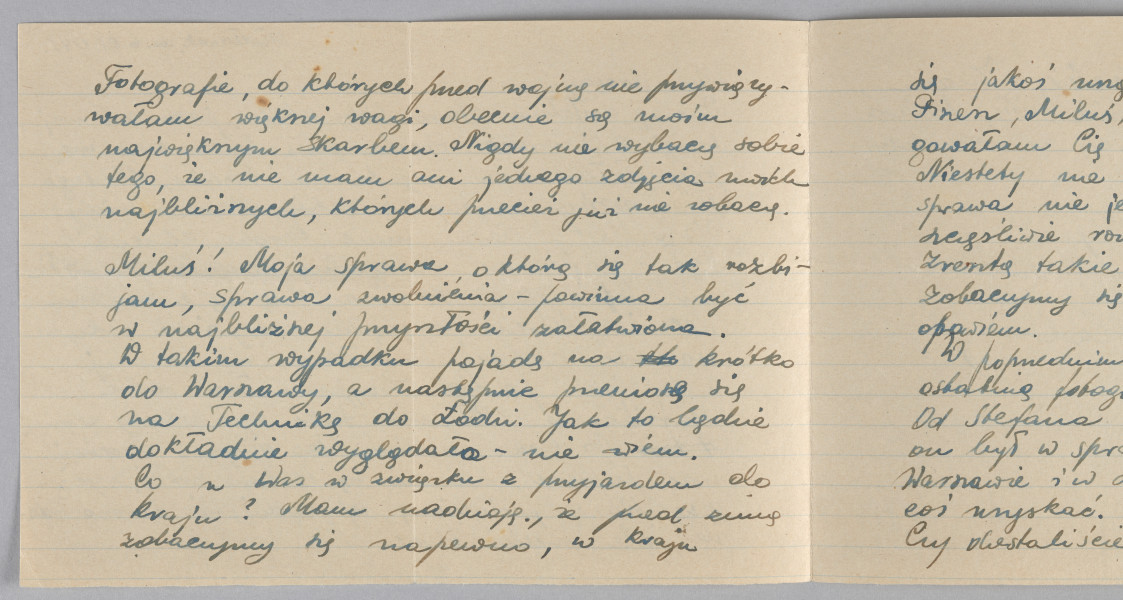 Fotografie, do których przed wojną nie przywiązy-
wałam większej wagi, obecnie są moim
największym skarbem. Nigdy nie wybaczę sobie
tego, że nie mam ani jednego zdjęcia moich
najbliższych, których przecież już nie zobaczę.
Miluś! Moja sprawa, o którą się tak rozbi-
jam, sprawa zwolnienia – powinna być
w najbliższej przyszłości załatwiona.
W takim wypadku pojadę na krótko
do Warszawy, a następnie przeniosę się
na Technikę do Łodzi. Jak to będzie
dokładnie wyglądało – nie wiem.
Co u Was w związku z przyjazdem do
kraju? Mam nadzieję, że przed zimą
zobaczymy się napewno, w kraju
się jakoś
Piszesz, Miluś,
gowałam Cię
Niestety na
sprawa nie
szczęśliwie
Zresztą takie
zobaczymy się
opowiem.
W poprzednim
ostatnią
Od Stefana
on był w
Warszawie i w
coś uzyskać.
Czy dostaliście